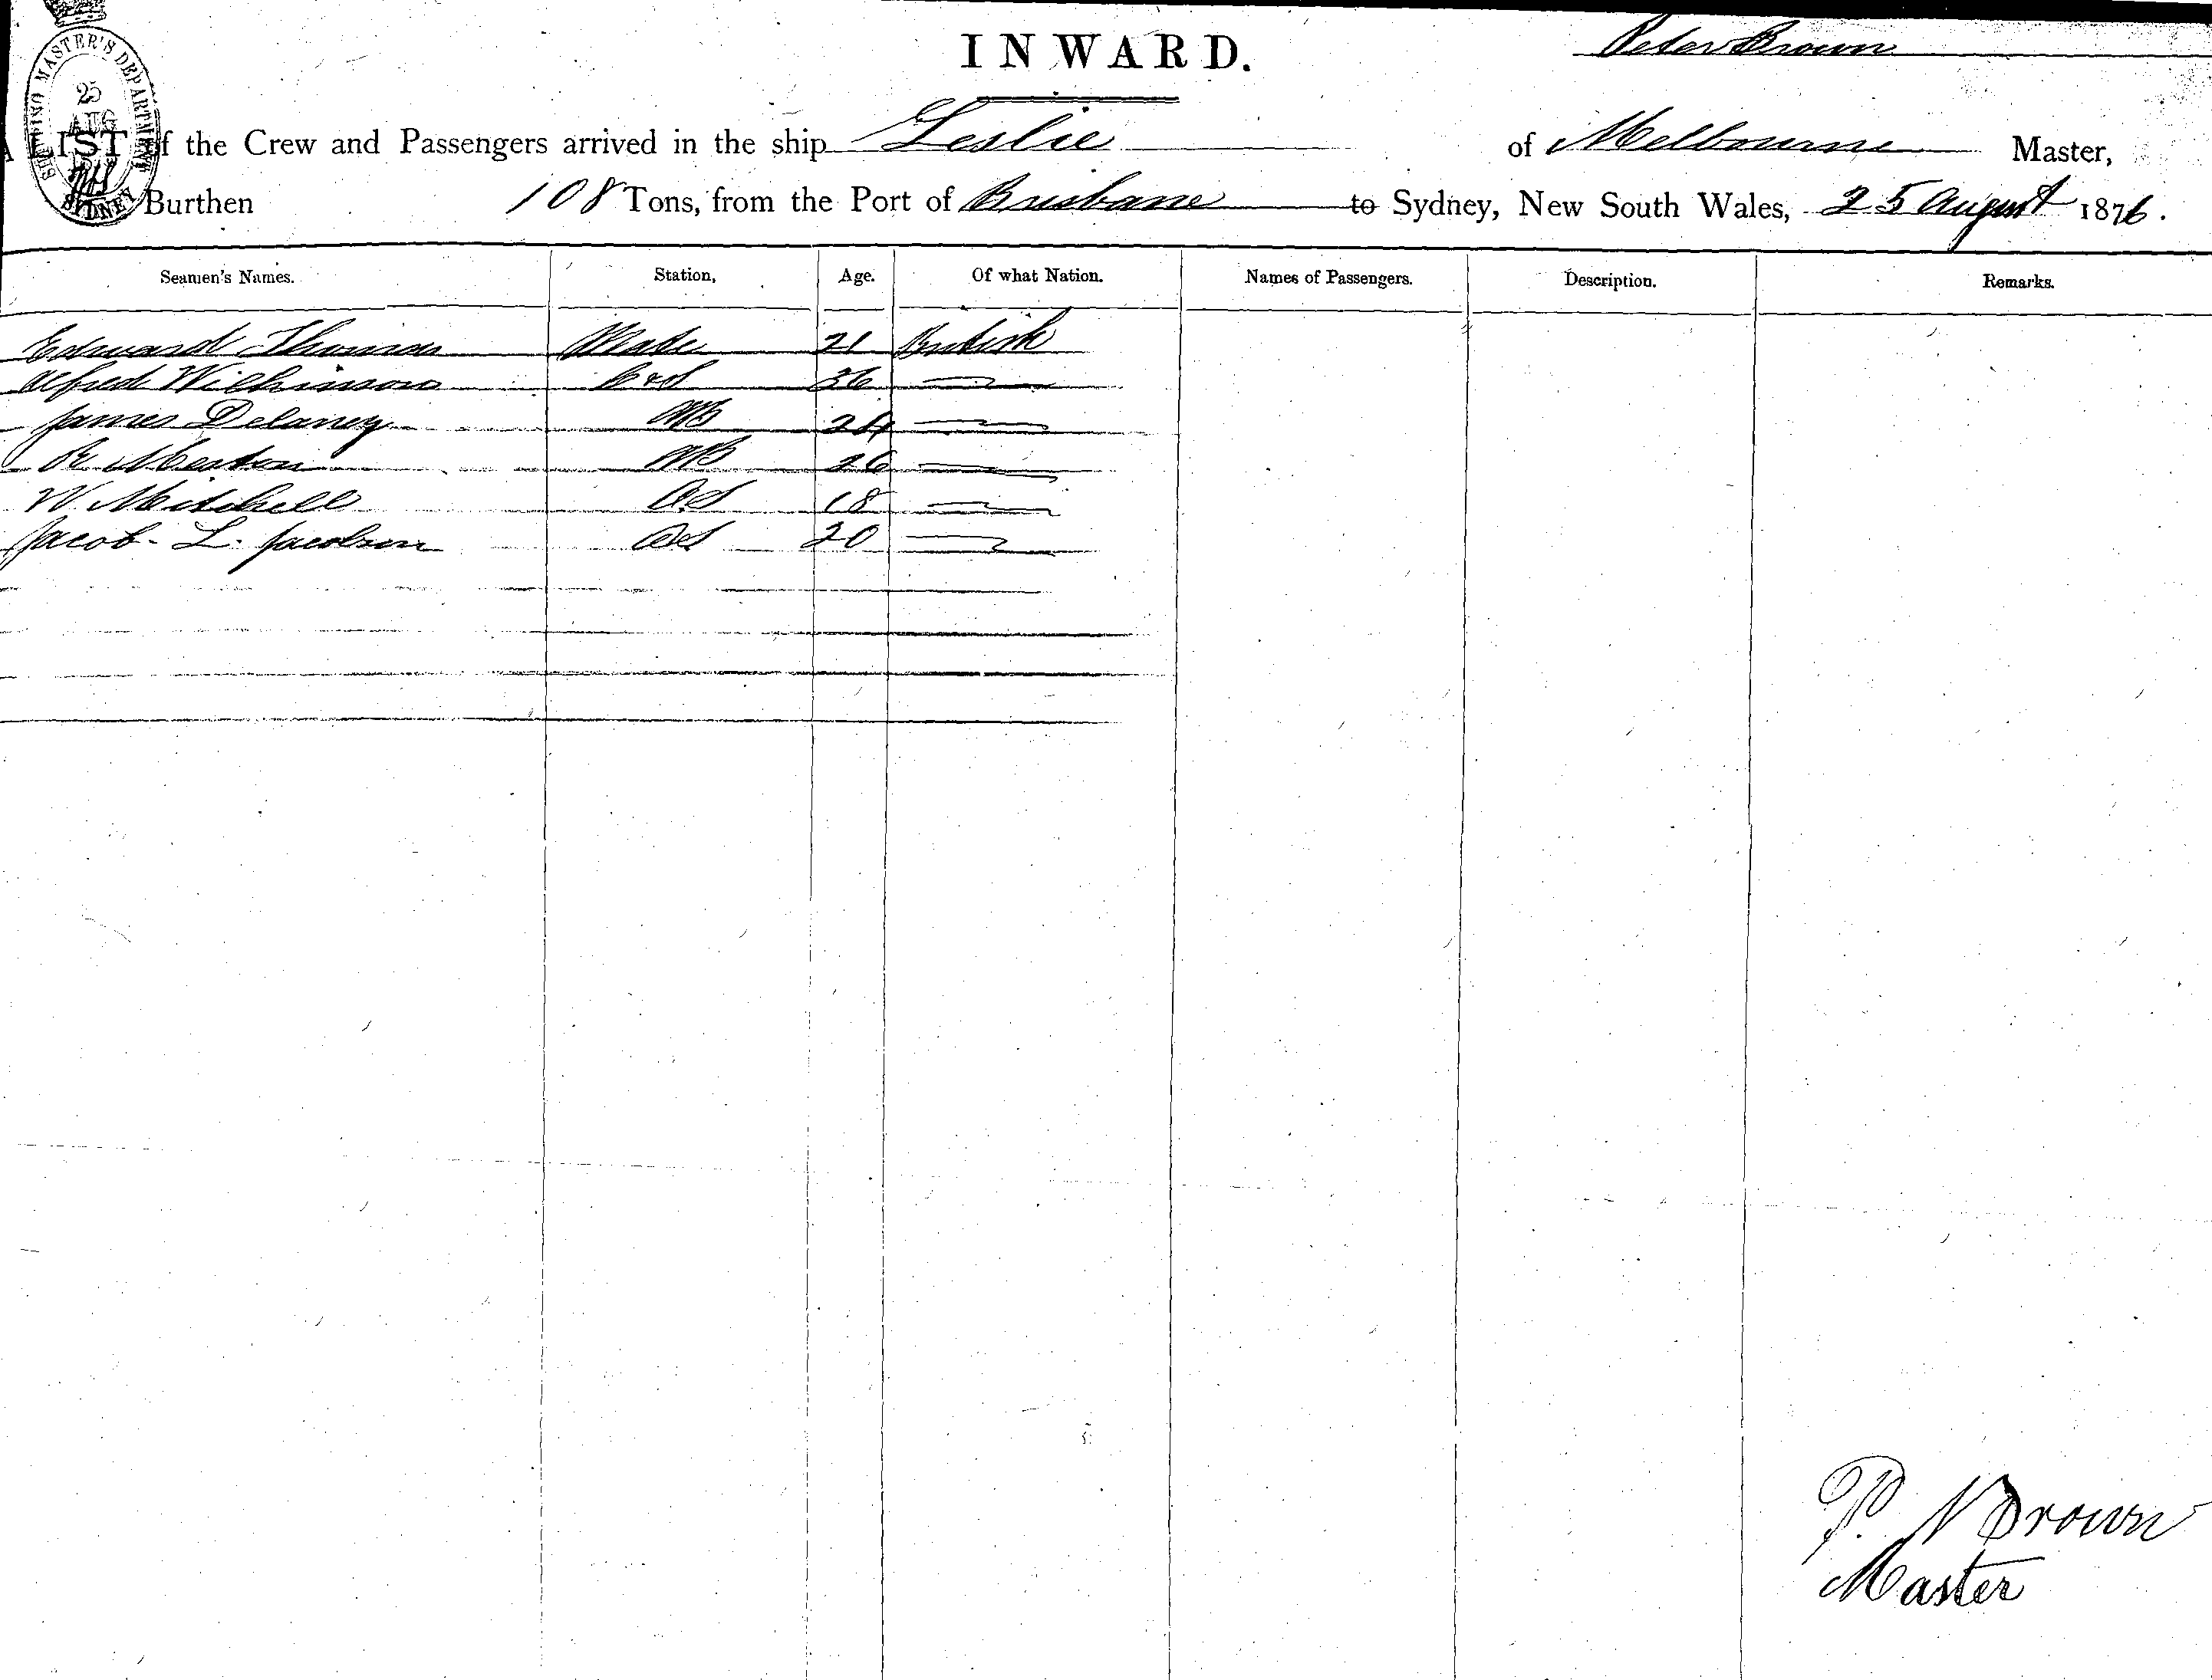 INWARD.
Peter Brown
SHIPPING MASTER'S DEPARTMENT
25
AUG
SYDNEY
A LIST of the Crew and Passengers arrived in the ship Leslie of Melbourne Master,
Burthen 108 Tons, from the Port of Brisbane to Sydney, New South Wales, 25 August 1876.
Seamen's Names. Station, Age. Of what Nation. Names of Passengers. Description. Remarks.
Edward Thomas Mate 21 British
Alfred Wilkinson 36
James Delaney AB 24
R. AB 26
W. Mitchell OS 18
Jacob L. Jacobsen OS 20
P. N Brown
Master